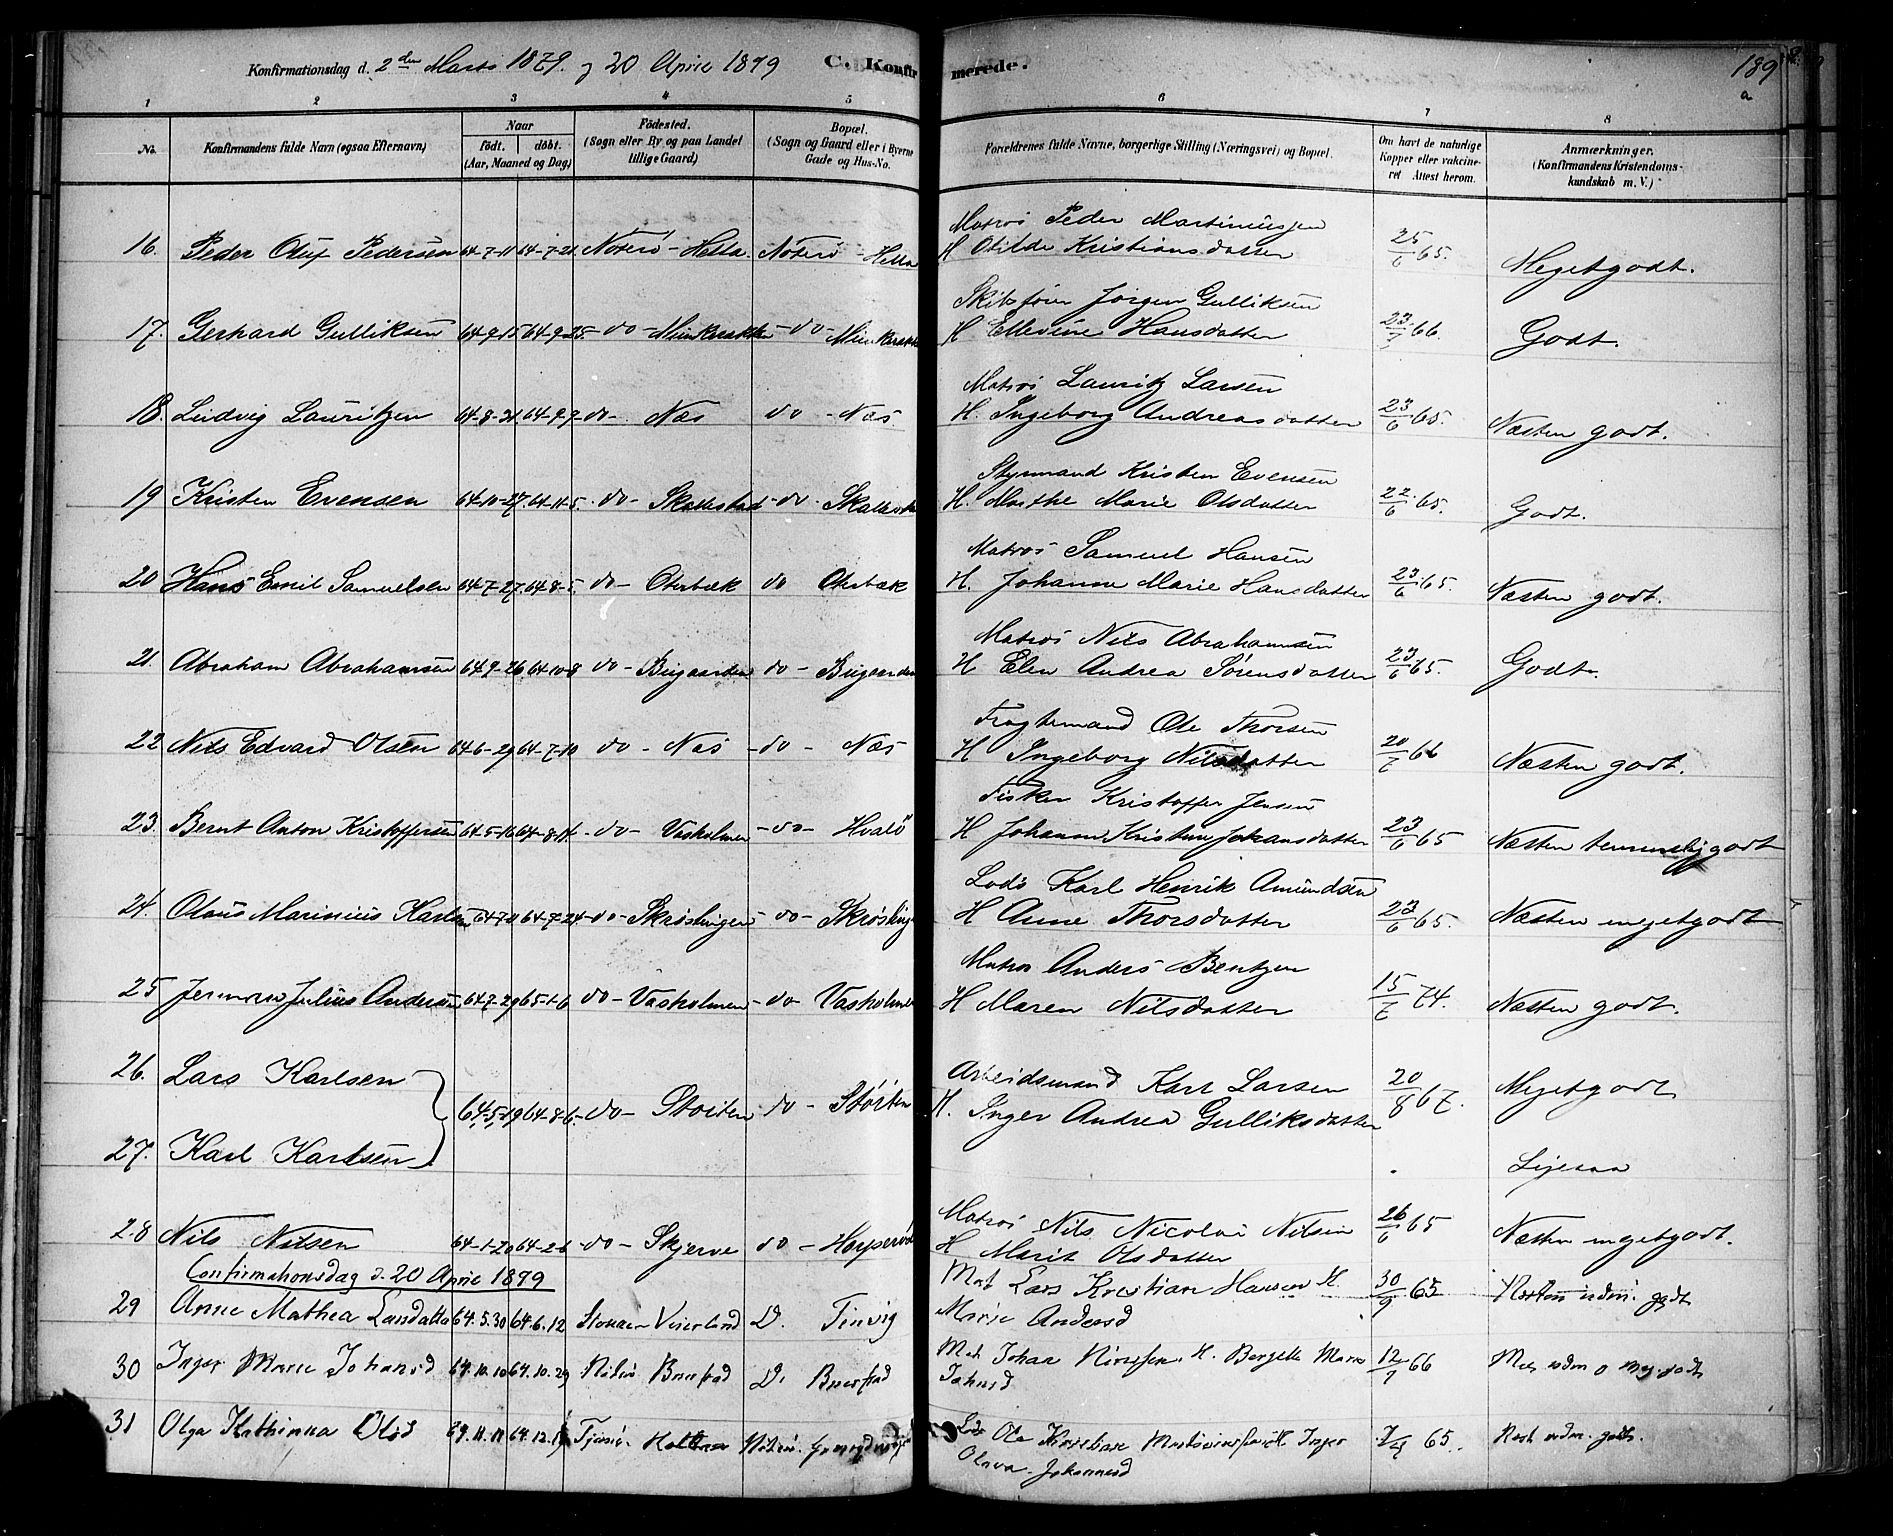 Konfirmationsdag d. 2den Marts 1879. og 20 April 1879 C. Konfirmerede. 189
a
1 2 3 4 5 6 7 8
No. Konfirmandens fulde Navn (ogsaa Efternavn) Naar födt. döbt. (Aar, Maaned og Dag) Födested. (Sogn eller By og paa Landet tillige Gaard) Bopæl. (Sogn og Gaard eller i Byerne Gade og Hus-No. Forældrenes fulde Navne, borgerlige Stilling (Næringsvei) og Bopæl. Om havt de naturlige Kopper eller vakcineret Attest herom. Anmærkninger. (Konfirmandens Kristendomskundskab m. V.)
Matros Peder Martiniussen
16. Peder Oluf Pedersen 64-7-11 64-7-21. Nøterö - Hella. Nøterö - Hella H Otilde Kristiansdatter 25/6 65. Megetgodt.
Skibsförer Jörgen Gulliksen
17. Gerhard Gulliksen 64-9-15 64-9-25. - do - Munkerekken - do - H Ellevine Hansdatter 23/7 66. Godt.
Matros Lauritz Larsen
18. Ludvig Lauritzen 64-8-21. 64-9-9 - do - Næs do - Næs. H. Ingeborg Andreasdatter 23/6 65. Næsten godt.
Styrmand Kristen Evensen
19 Kristen Evensen 64-10-27. 64-11-5. - do - Skallestad - do - H. Marthe Marie Olsdatter 22/6 65. Godt.
Matros Samuel Hansen
20 Hans Emil Samuelsen 64-7-27. 64-8-5. do - Oterbæk do Oterbæk H. Johanne Marie Hansdatter 23/6 65. Næsten godt.
Matros Nils Abrahamsen
21. Abraham Abrahamsen 64-9-26 64-10-8 do - Bugaarden do - Bugaarden H Elen Andrea Sörensdatter 23/6 65. Godt.
Fragtemand Ole Thorsen
22 Nils Edvard Olsen 64-6-29 64-7-10 do - Næs - do - Næs H Ingeborg Nilsdatter 20/7 66 Næsten godt.
Fisker Kristoffer Jensen
23. Bernt Anton Kristoffersen 64-5-16 64-8-14. - do - Vasholmen - do - Hvalö H Johanne Kristine Johansdatter 23/6 65 Næsten temmelig godt
Lods Karl Henrik Amundsen
24. Olaus Marinius Karlsen 64-7-11 64-7-24. - do - Skröslingen - do - H Anne Thorsdatter 23/6 65. Næsten megetgodt
Matros Anders Bentzen
25 Julius Andersen 64-7-29 65-1-6 do - Vasholmen - do - Vasholmen H Maren Nilsdatter 15/7 74. Næsten godt.
26. Lars Karlsen Arbeidsmand Karl Larsen 20/8 67. Megetgodt
64-5-19 64-8-6. - do - Stoiten do - Stoiten H. Inger Andrea Gulliksdatter
27. Karl Karlsen Ligesaa
28 Nils Nilsen 64-1-20 64-2-6 - do - Skjerve do - Matros Nils Nicolai Nilsen 26/6 65 Næsten megetgodt.
H Marit Olsdatter
Confirmationsdag d. 20 April 1879
29 Anne Mathea Larsdatter 64.5.30 64.6.12 Veierland D. Tenvig Mat Lars Kristian Hansen H. 30/9 65 godt
Marie Andersd
30 Inger Marie Johansd 64.10.10 64.10.29 D. Mat. Johan H. Bergitte Maria 12/7 66
31 Olga Kathinka Olsd 64.11.11 64.12. Tjömö. Lods Ole Kristian H Inger 65.
Olava Johannesd